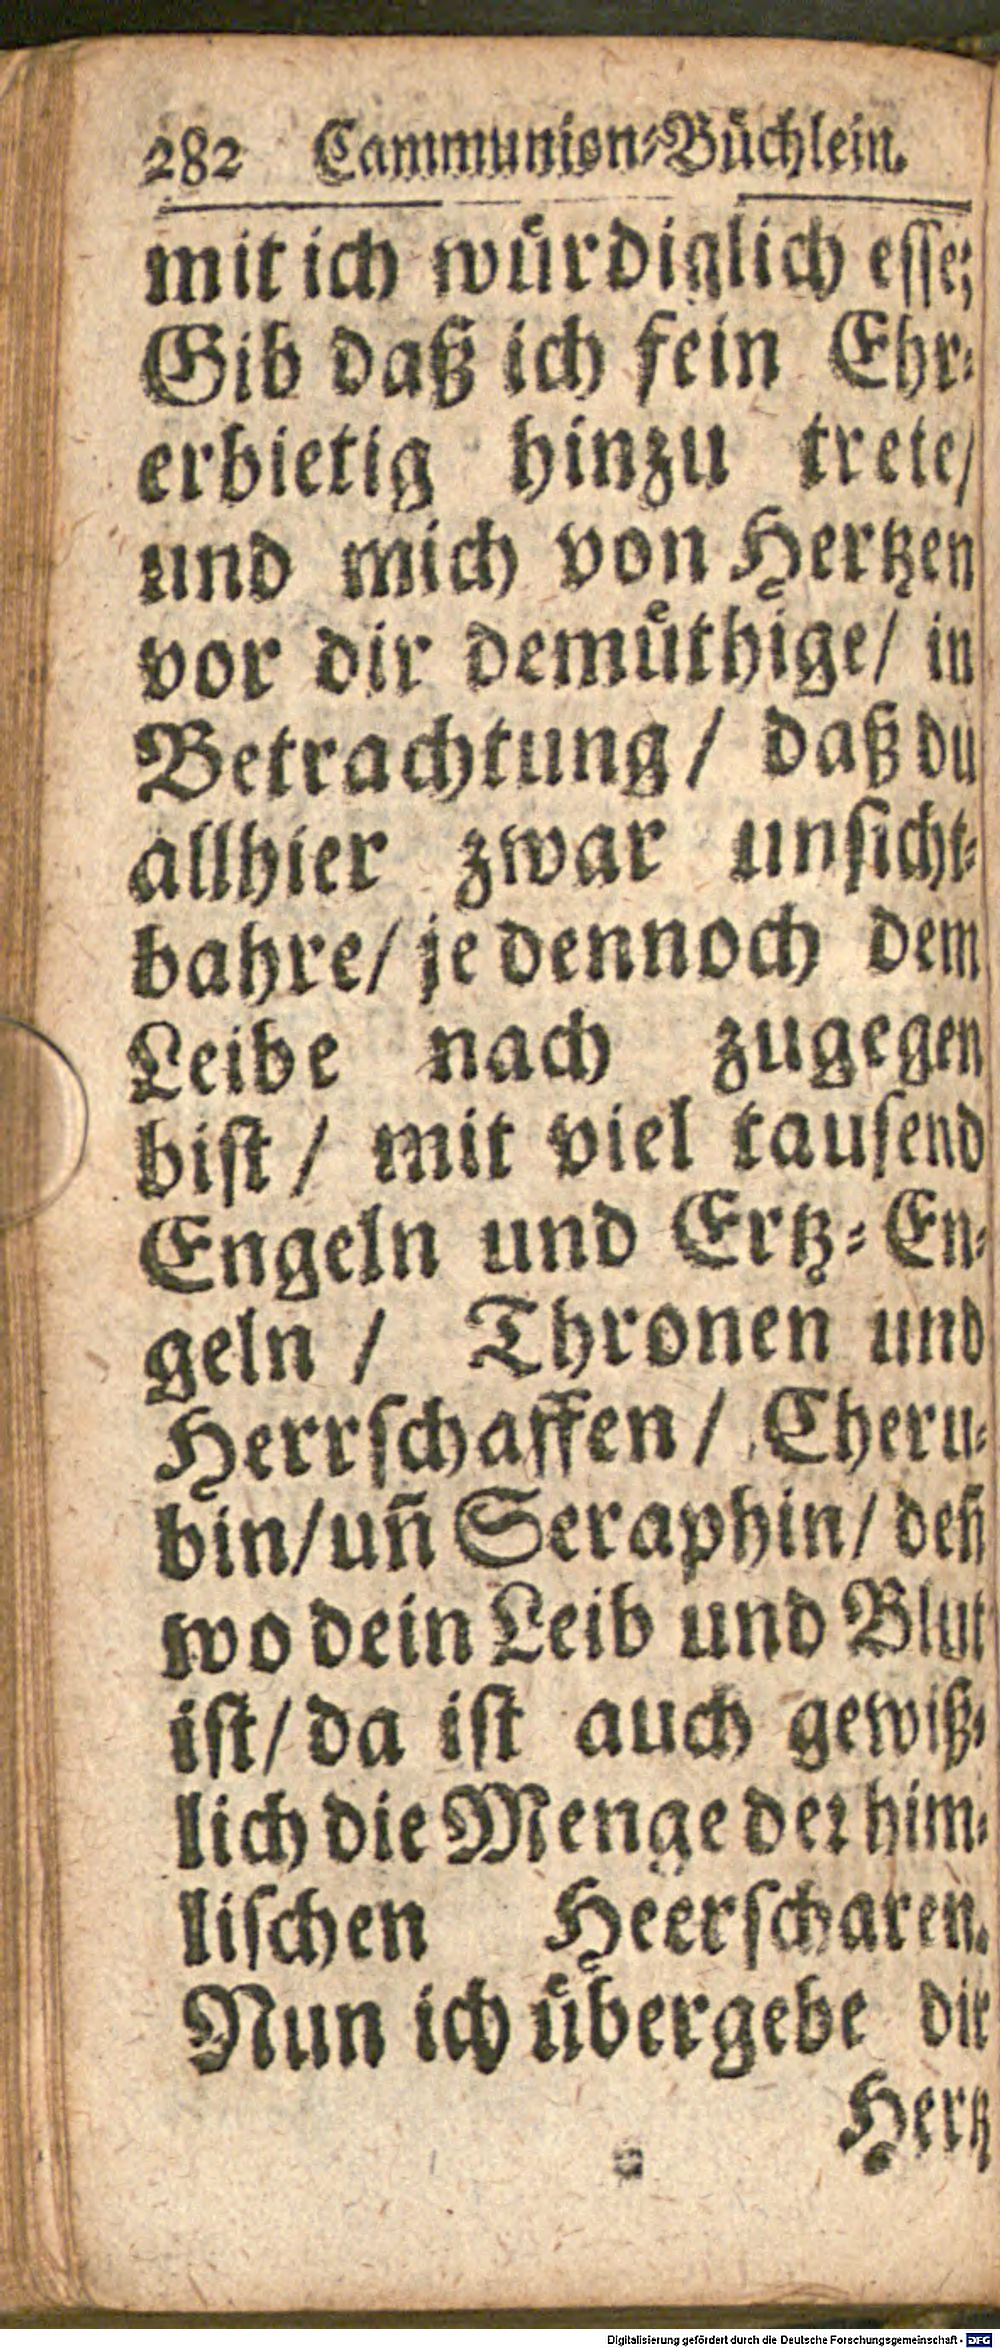 282 Cammunion-Büchlein.
mit ich würdiglich esse;
Gib daß ich fein Ehr-
erbietig hinzu trete/
und mich von Hertzen
vor dir demüthige/ in
Betrachtung / daß du
allhier zwar unsicht-
bahre/ je dennoch dem
Leibe nach zugegen
bist / mit viel tausend
Engeln und Ertz-En-
geln / Thronen und
Herrschaffen / Cheru-
bin/uñ Seraphin/ deñ
wo dein Leib und Blut
ist/ da ist auch gewiß-
lich die Menge der him-
lischen Heerscharen.
Nun ich übergebe dir
Hertz
Digitalisierung gefördert durch die Deutsche Forschungsgemeinschaft - DFG